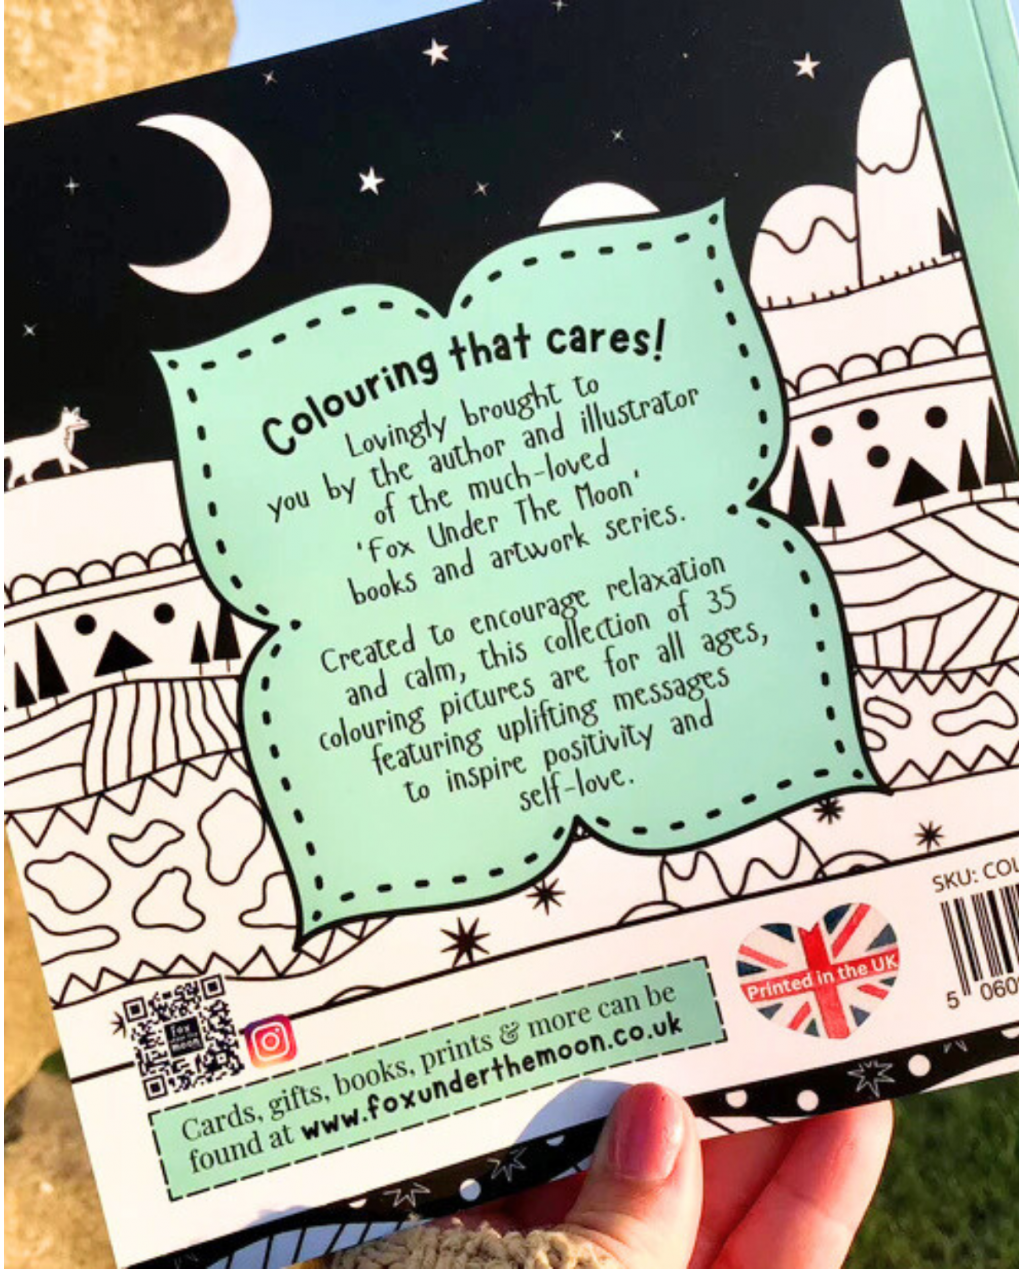 Colouring that cares!
Lovingly brought to
you by the author and illustrator
of the much-loved
'Fox Under The Moon'
books and artwork series.
Created to encourage relaxation
and calm, this collection of 35
colouring pictures are for all ages,
featuring uplifting messages
to inspire positivity and
self-love.
SKU: COL
Printed in the UK
5 060
fox
moon
Cards, gifts, books, prints & more can be
found at www.foxunderthemoon.co.uk